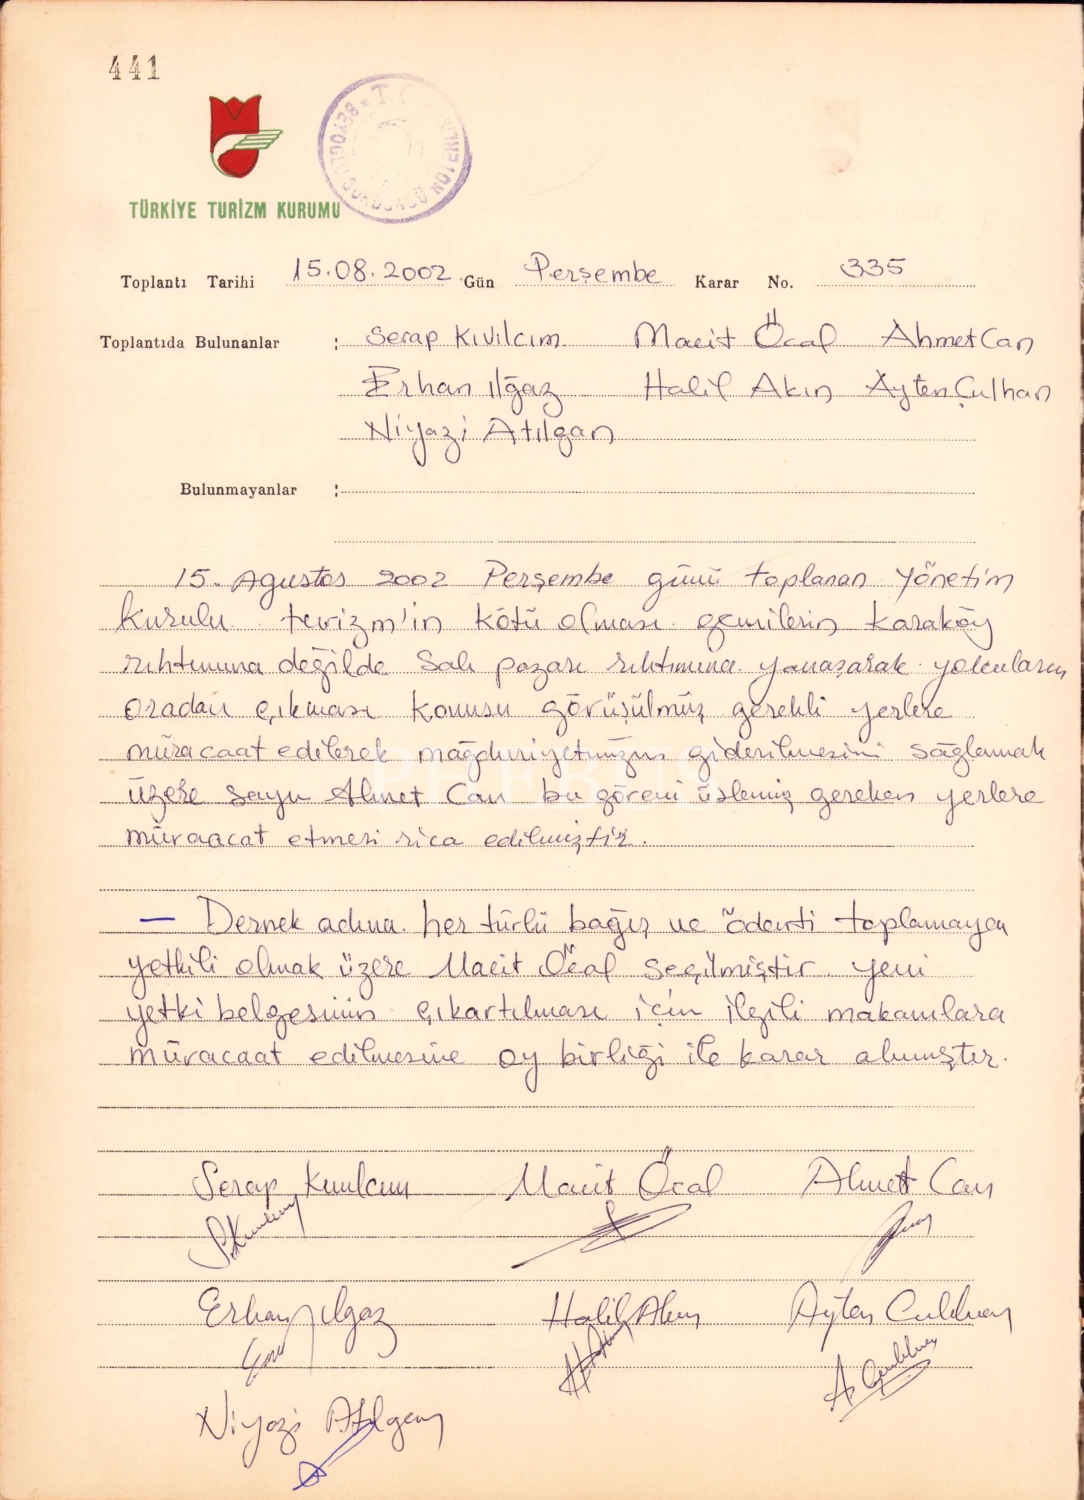 441
T.C.
BEYOĞLU NOTERLİĞİ
TÜRKİYE TURİZM KURUMU
Toplantı Tarihi 15.08.2002 Gün Perşembe Karar No. 335
Toplantıda Bulunanlar : Serap Kıvılcım Macit Öcal Ahmet Can
Erhan Ilğaz Halil Akın Ayten Çulhan
Niyazi Atılgan
Bulunmayanlar :
15. Agustos 2002 Perşembe günü toplanan Yönetim
kurulu turizm'in kötü olması gemilerin karaköy
rıhtımına değilde Salı pazarı rıhtımına yanaşarak yolcuların
oradan çıkması konusu görüşülmüş gerekli yerlere
müracaat edilerek mağduriyetimizin giderilmesini sağlamak
üzere Sayın Ahmet Can bu göreni üslemiş gereken yerlere
müraacat etmesi rica edilmiştir.
— Dernek adına her türlü bağış ve ödenti toplamaya
yetkili olmak üzere Macit Öcal seçilmiştir. yeni
yetki belgesinin çıkartılması için ilgili makamlara
müracaat edilmesine oy birliği ile karar alınmıştır.
Serap Kıvılcım Macit Öcal Ahmet Can
S.Kıvılcım
Erhan Ilgaz Halil Akın Ayten Culhan
Niyazi Atılgan
PHEBUS